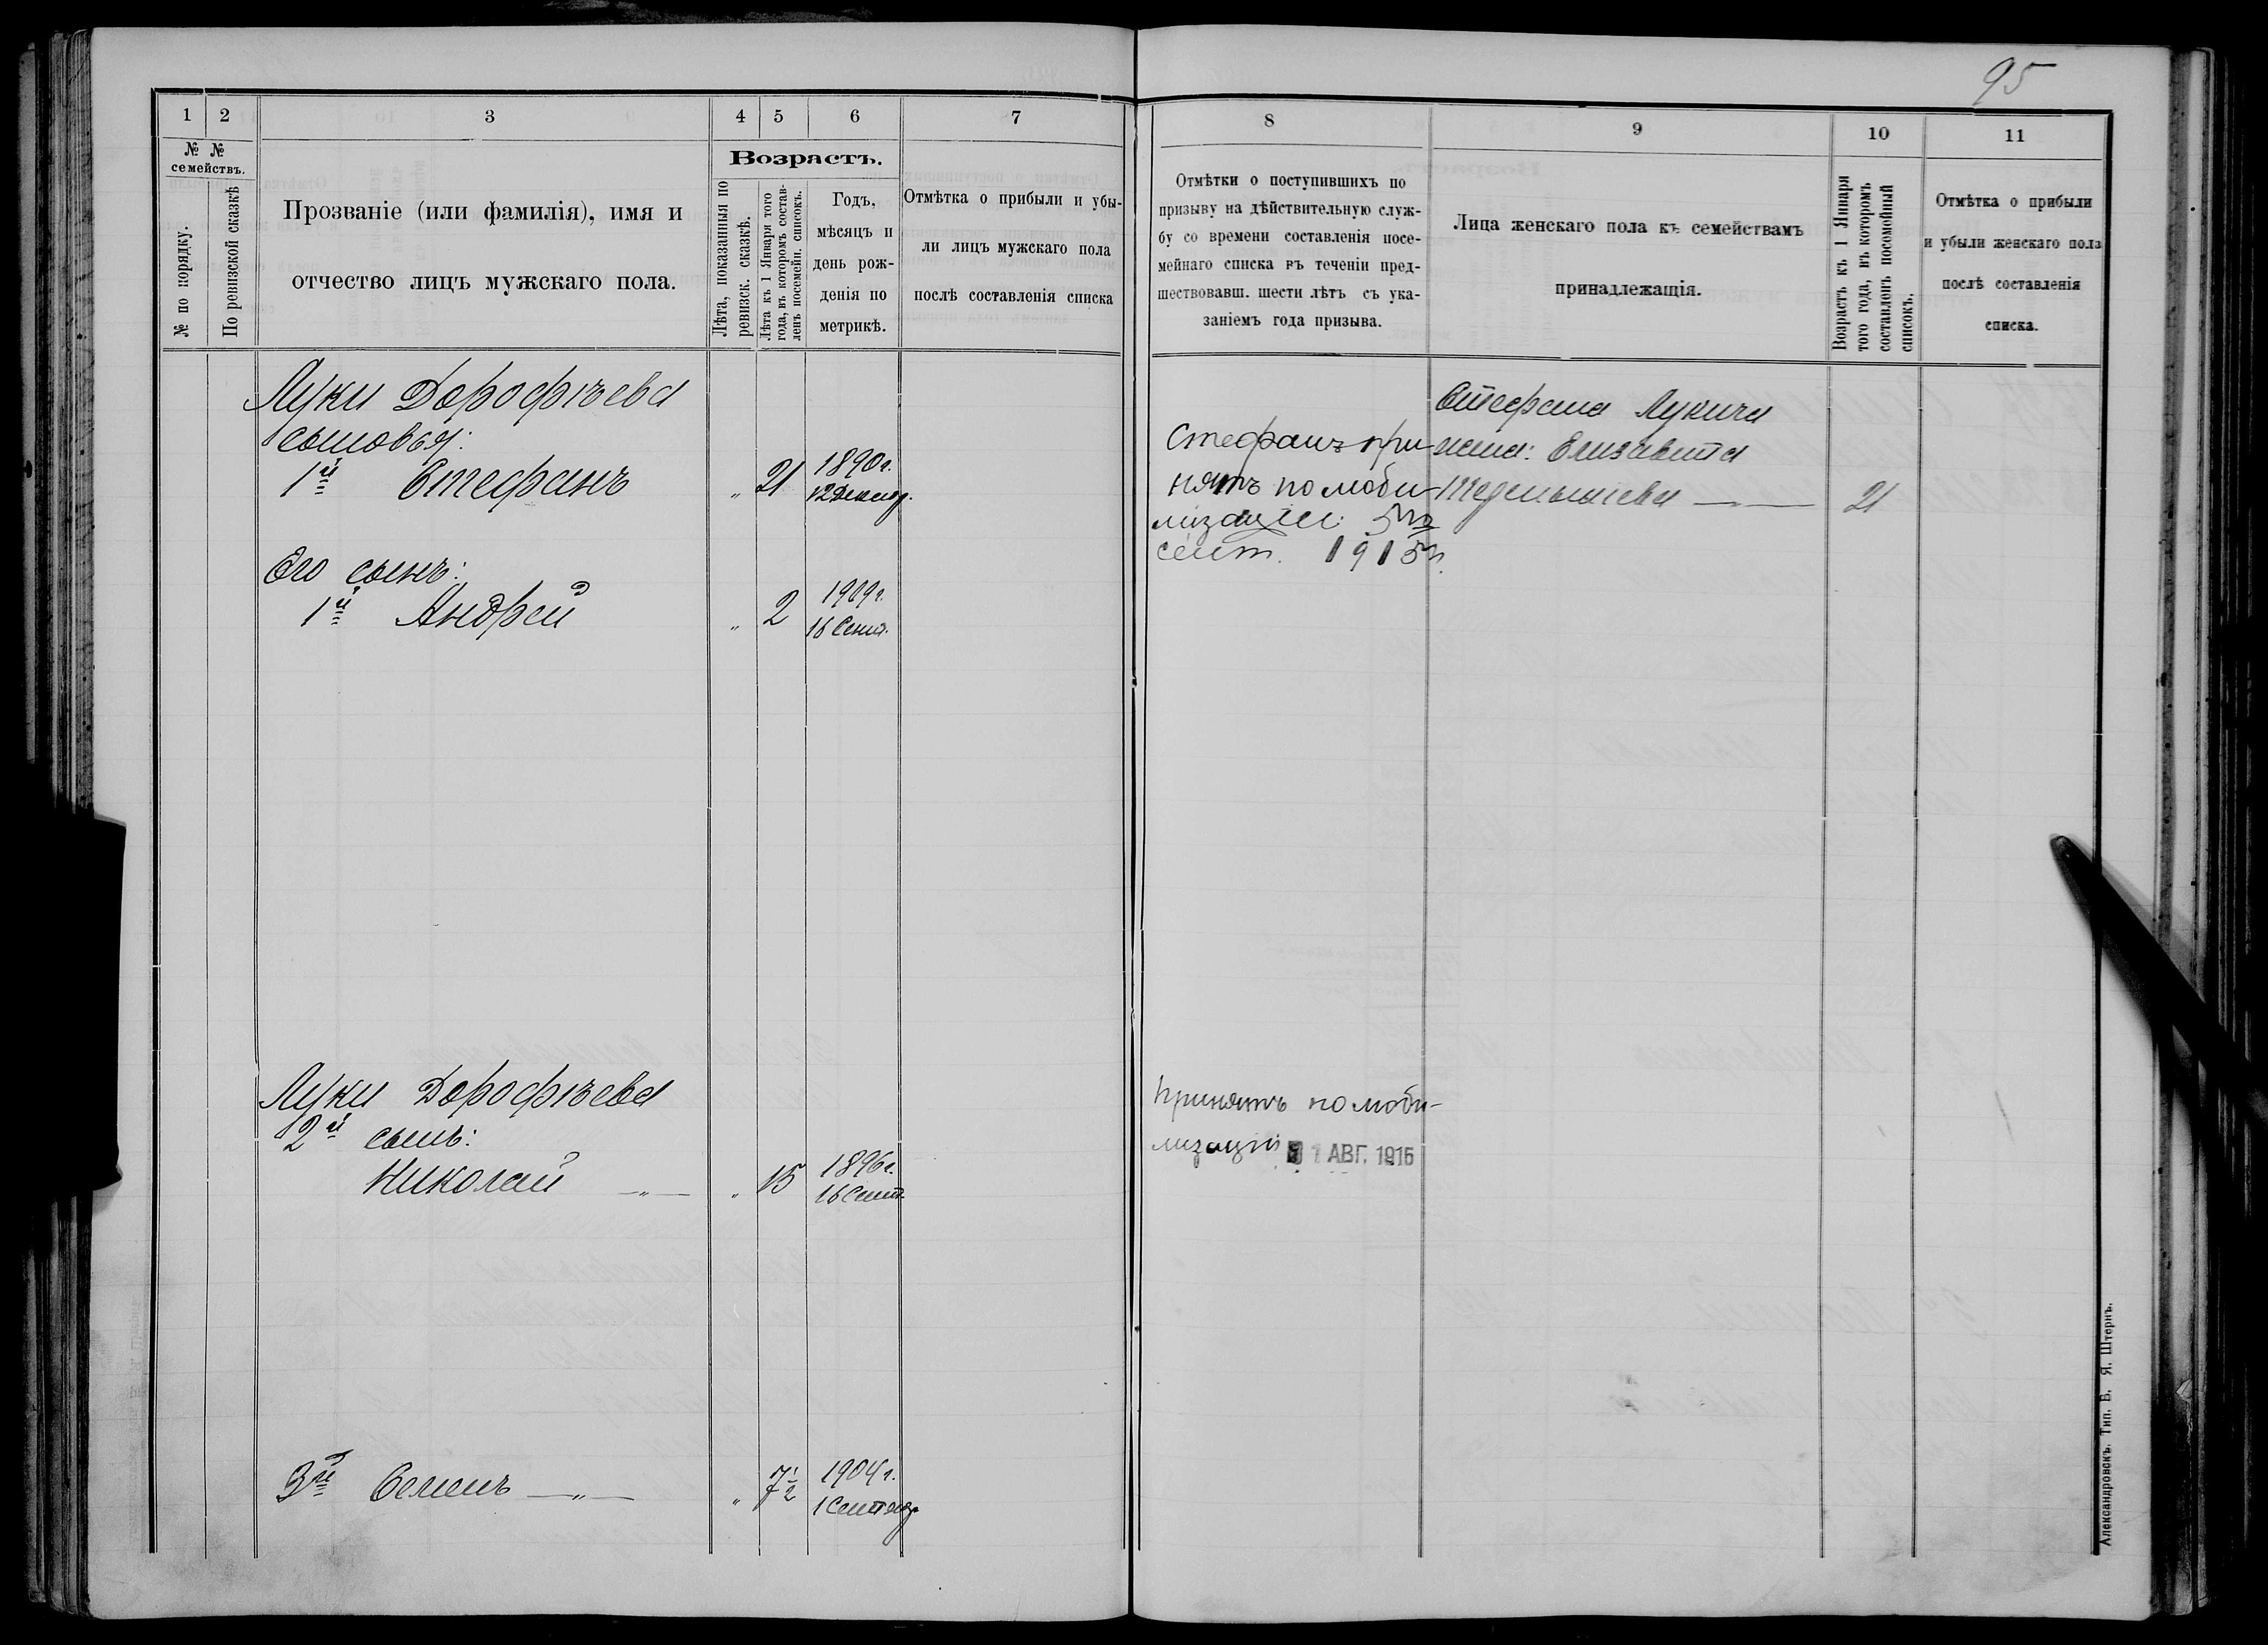 95
1
2
3
4
5
6
7
№ №
семействъ.
№ по порядку.
По ревизской сказкѣ
Прозваніе (или фамилія), имя и
отчество лицъ мужскаго пола.
Возрастъ.
Лѣта, показанныя по
ревизск. сказкѣ.
Лѣта къ 1 Января того
года, въ которомъ состав-
ленъ посемейн. списокъ.
Годъ,
мѣсяцъ и
день рож-
денія по
метрикѣ.
Отмѣтка о прибыли и убы-
ли лицъ мужскаго пола
послѣ составленія списка
Луки Дорофѣева
сыновья:
1й Стефанъ „ 21 1890г.
12 Декабр.
Его сынъ:
1й Андрей „ 2 1909г.
16 Сент.
Луки Дорофѣева
2й сынъ:
Николай —„— „ 15 1896г.
16 Сент.
3й Семенъ —„— „ 7½ 1904г.
1 Сентябр.
8
9
10
11
Отмѣтки о поступившихъ по
призыву на дѣйствительную служ-
бу со времени составленія посе-
мейнаго списка въ теченіи пред-
шествовавш. шести лѣтъ съ ука-
заніемъ года призыва.
Лица женскаго пола къ семействамъ
принадлежащія.
Возрастъ къ 1 Января
того года, въ которомъ
составленъ посемейный
списокъ.
Отмѣтка о прибыли
и убыли женскаго пола
послѣ составленія
списка.
Стефанъ при-
нятъ по моби-
лизаціи
сент. 1915г.
Стефана Лукича
жена: Елизавета
—„— 21
Принятъ по моби-
лизаціи АВГ. 1915
Александровскъ. Тип. Б. Я. Штернъ.